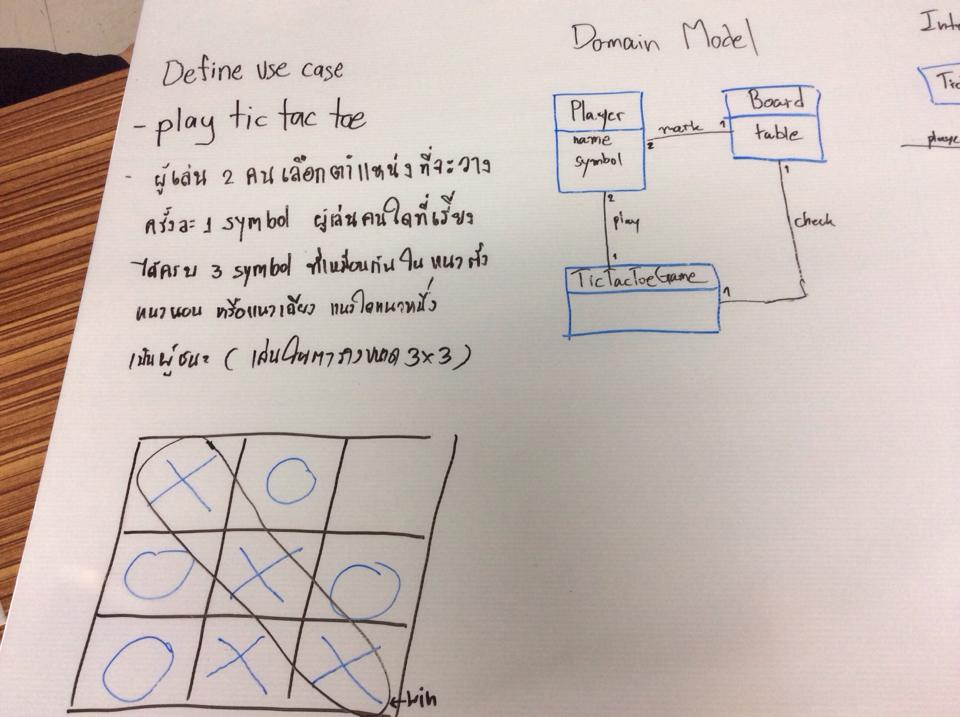 Define use case
- play tic tac toe
- ผู้เล่น 2 คนเลือกตำแหน่งที่จะวาง
ครั้งละ 1 symbol ผู้เล่นคนใดที่เรียง
ได้ครบ 3 symbol ที่เหมือนกันใน แนวตั้ง
แนวนอน หรือแนวเฉียง แนวใดแนวหนึ่ง
เป็นผู้ชนะ ( เล่นในตารางขนาด 3x3 )
X O
O X O
O X X
←win
Domain Model
Player
name
symbol
2
mark
1
Board
table
2
play
1
1
check
TicTacToeGame
1